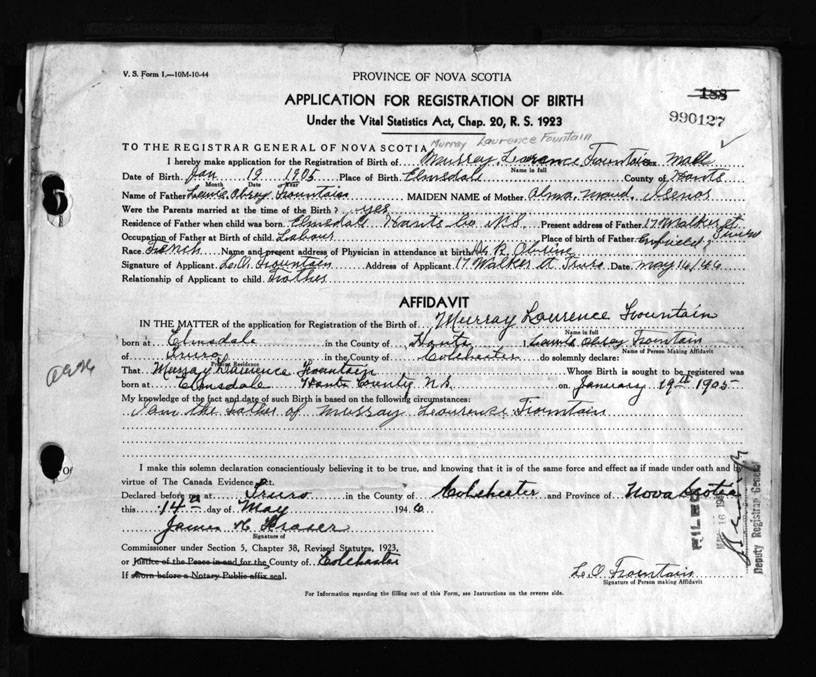 V. S. Form 1.—10M-10-44
PROVINCE OF NOVA SCOTIA
188
APPLICATION FOR REGISTRATION OF BIRTH
990127
Under the Vital Statistics Act, Chap. 20, R. S. 1923
Murray Laurence Fountain
TO THE REGISTRAR GENERAL OF NOVA SCOTIA
I hereby make application for the Registration of Birth of Murray Leurance Fountain Male
Name in full
Date of Birth Jan 19 1905 Place of Birth Elmsdale County of Hants
Month Date Year
Name of Father Fountain MAIDEN NAME of Mother Alma Maud Isenor
Were the Parents married at the time of the Birth? yes
Residence of Father when child was born Elmsdale Hants Co N.S. Present address of Father 17 Walker St Truro
Occupation of Father at Birth of child Labour Place of birth of Father Enfield
Race French Name and present address of Physician in attendance at birth Dr R.
Signature of Applicant L.O. Fountain Address of Applicant 17 Walker St Truro Date May 14/46
Relationship of Applicant to child Father
AFFIDAVIT
IN THE MATTER of the application for Registration of the Birth of Murray Laurence Fountain
Name in full
born at Elmsdale in the County of Hants I, Fountain
Name of Person Making Affidavit
of Truro in the County of Colchester do solemnly declare:
Present Residence
That Murray Laurence Fountain Whose Birth is sought to be registered was
born at Elmsdale Hants County N.S. on January 19th 1905
My knowledge of the fact and date of such Birth is based on the following circumstances:
I am the Father of Murray Leourence Fountain
I make this solemn declaration conscientiously believing it to be true, and knowing that it is of the same force and effect as if made under oath and by
virtue of The Canada Evidence Act.
Declared before me at Truro in the County of Colchester and Province of Nova Scotia
this 14th day of May 1946
James Fraser
Signature of
Commissioner under Section 5, Chapter 38, Revised Statutes, 1923,
or Justice of the Peace in and for the County of Colchester
If sworn before a Notary Public affix seal.
FILED
Deputy Registrar General
L.O. Fountain
Signature of Person making Affidavit
For Information regarding the filling out of this Form, see Instructions on the reverse side.